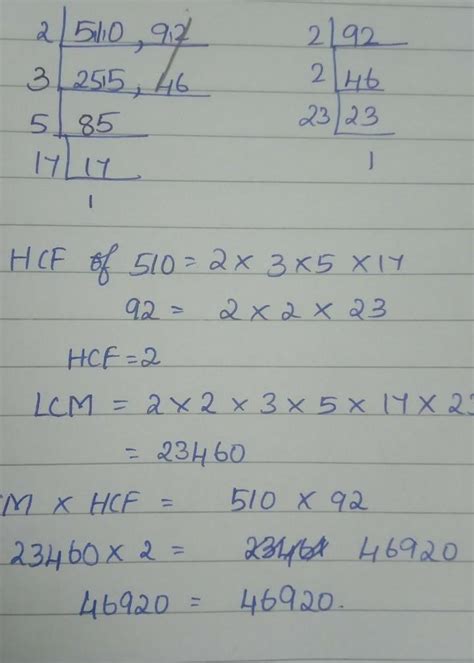 2 | 510, 92
3 | 255, 46
5 | 85
17 | 17
1
2 | 92
2 | 46
23 | 23
1
HCF of 510 = 2 × 3 × 5 × 17
92 = 2 × 2 × 23
HCF = 2
LCM = 2 × 2 × 3 × 5 × 17 × 2
= 23460
M × HCF = 510 × 92
23460 × 2 = 46920
46920 = 46920.